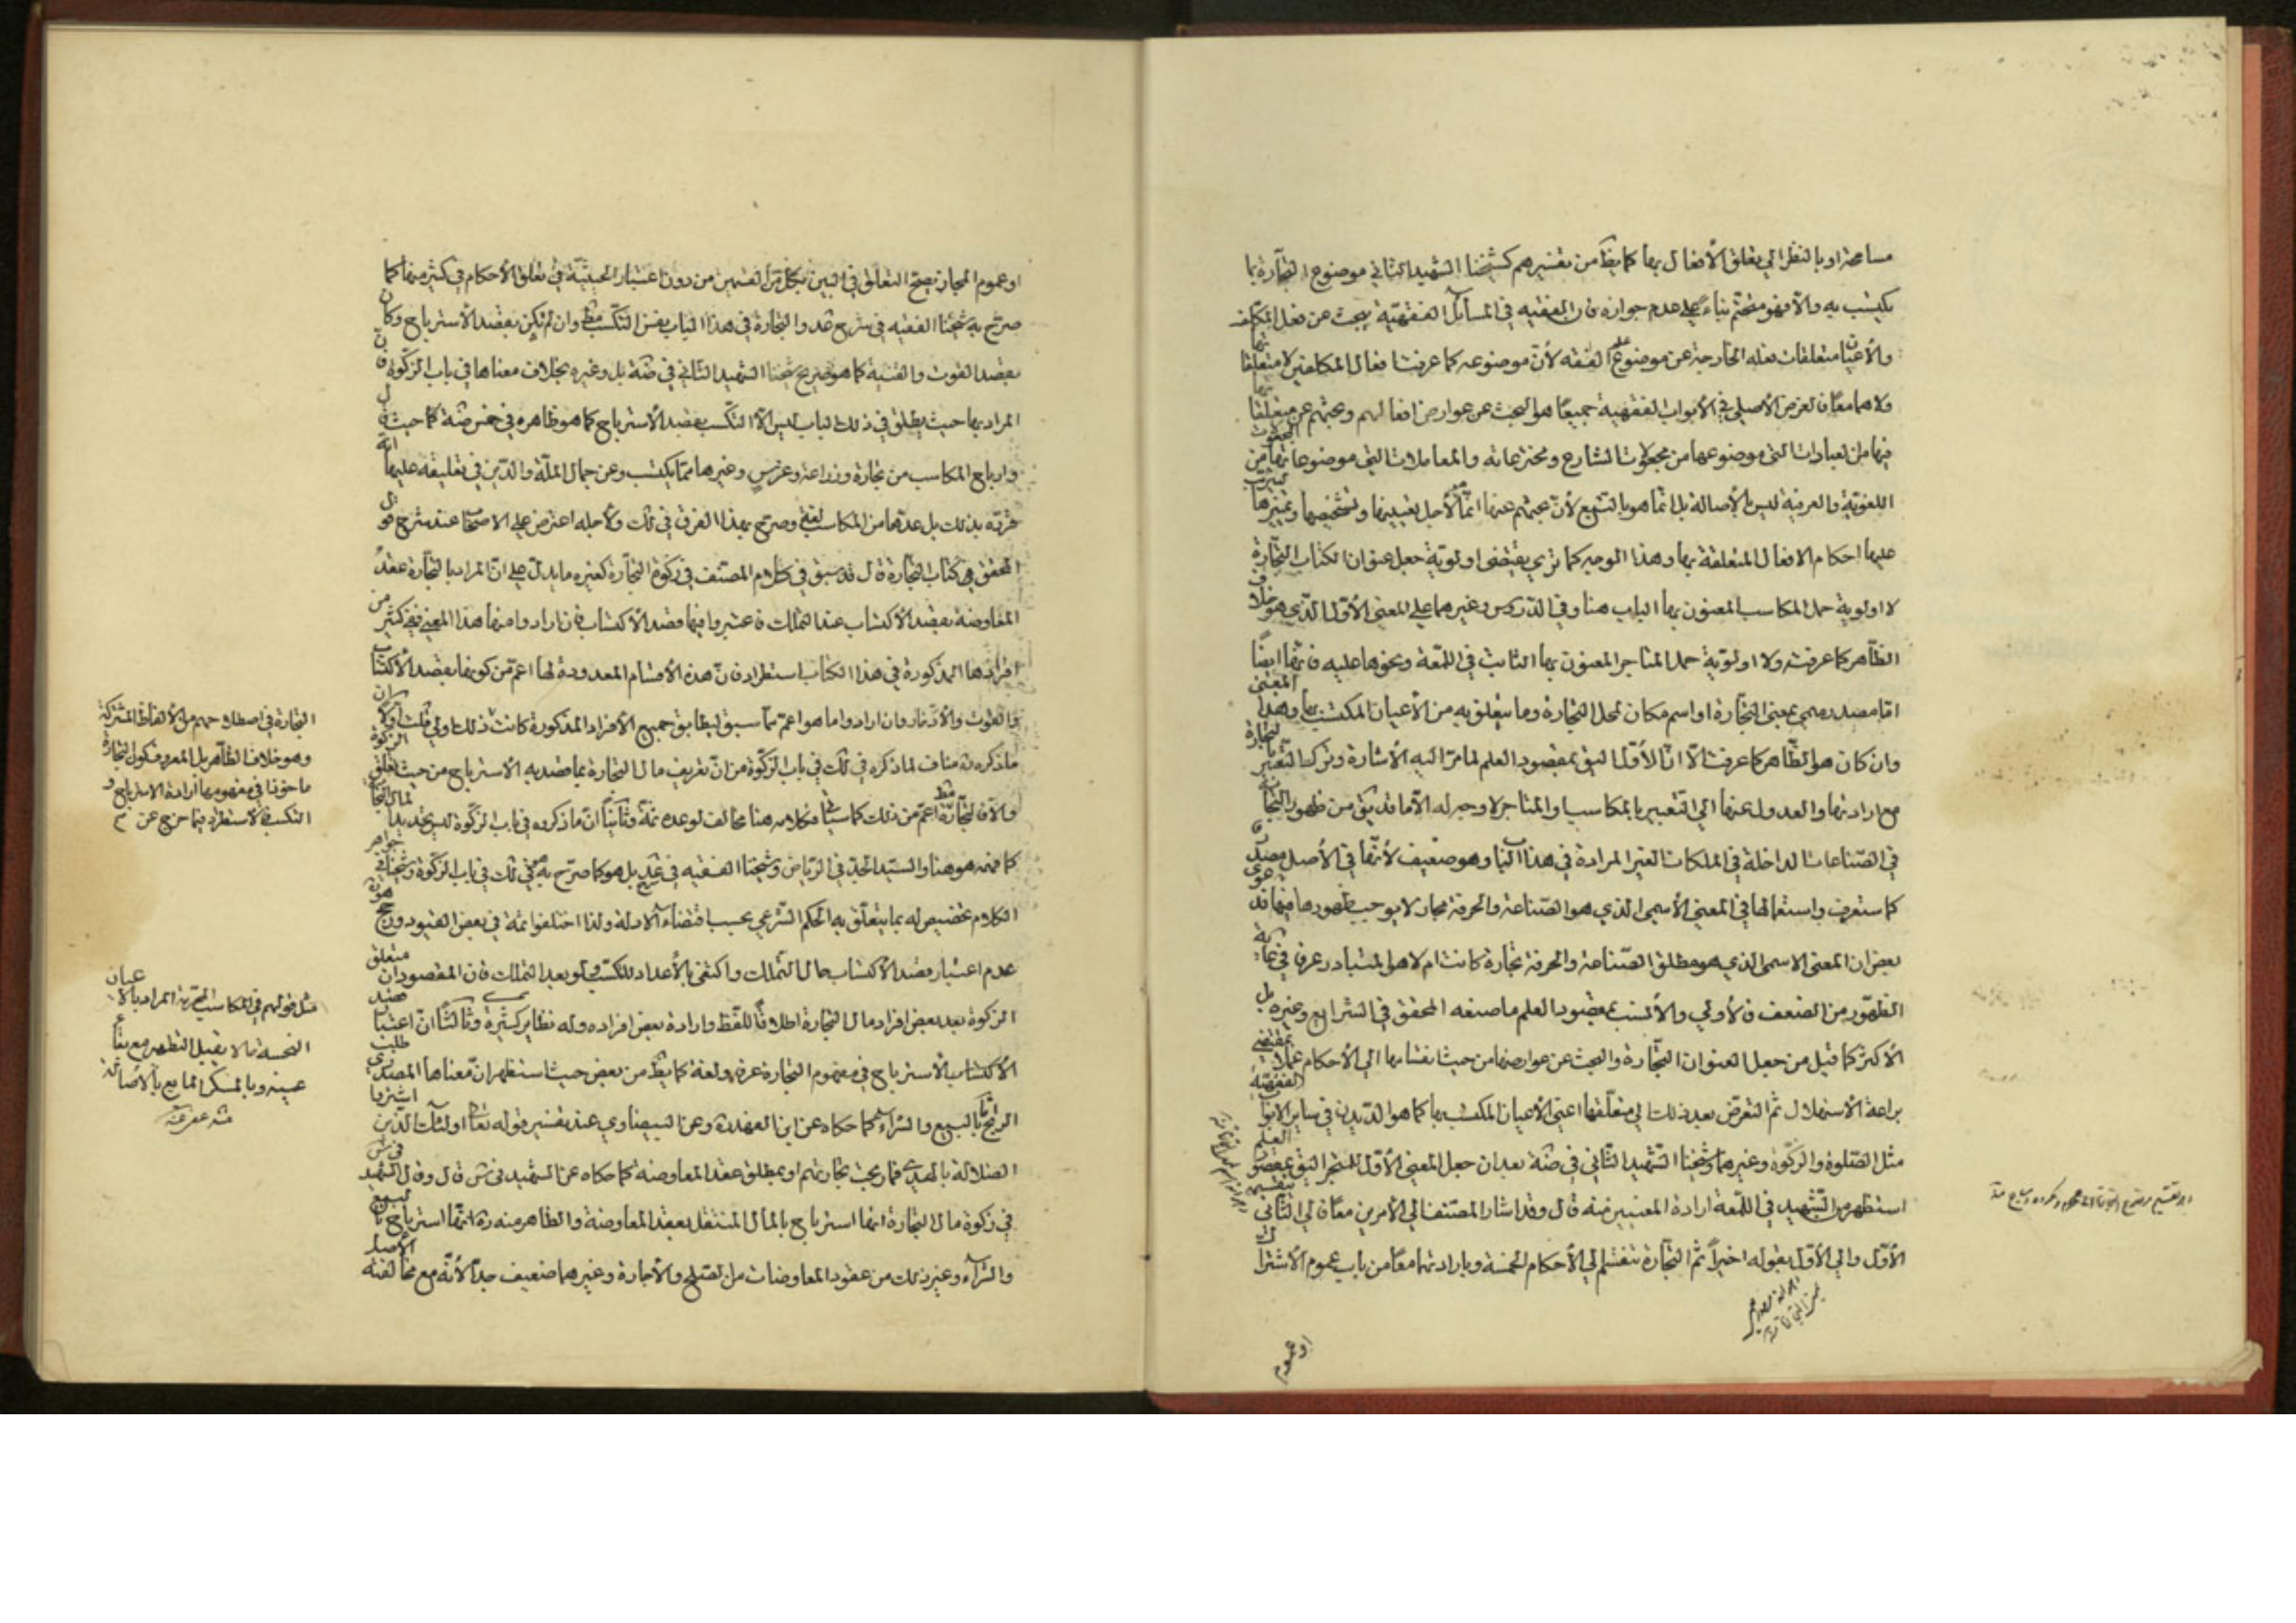 مسامحة او بالنظر الى تعلق الأفعال بها كما يظ من تفسيرهم كشيخنا الشهيد الثاني موضوع التجارة بما
يكتسب به والا فهو متحتم بناء على عدم جوازه فان الفقيه في المسائل الفقهية يبحث عن فعل المكلف
والأعيان متعلقات فعله الخارجة عن موضوع علم الفقه لأن موضوعه كما عرفت افعال المكلفين لا متعلقاتها
ولا هما معا فان الغرض الأصلي في الأبواب الفقهية جميعا هو البحث عن عوارض افعالهم وبحثهم عن متعلقاتها
فيها من العبادات التي موضوعها من مجعولات الشارع ومخترعاته والمعاملات التي موضوعاتها من
اللغوية والعرفية ليس بالأصالة بل انما هو بالتبع لأن بحثهم عنها انما لأجل تعيينها وتشخيصها وتميزها
عليها احكام الافعال المتعلقة بها وهذا الوجه كما ترى يقتضى اولوية جعل عنوان الكتاب التجارة
لا اولوية حمل المكاسب المعنون بها الباب هنا وفي الدروس وغيرهما على المعنى الأول الذي هو خلاف
الظاهر كما عرفت ولا اولوية حمل المتاجر المعنون بها الثابت في اللمعة ونحوها عليه فانها ايضا
اما مصدر ميمي بمعنى التجارة او اسم مكان لمحل التجارة وما يتعلق به من الأعيان المكتسب بها وهذا المعنى
وان كان هو الظاهر كما عرفت الا ان الأول اليق بمقصود العلم لما مر اليه الأشارة وترك التعبير بالتجارة
مع ارادتها والعدول عنها الى التعبير بالمكاسب والمتاجر لا وجه له الا ما قد يق من ظهور التجارة
في الصناعات الداخلة في الملكات الغير المرادة في هذا الباب وهو ضعيف لأنها في الأصل مصدر
كما ستعرف واستعمالها في المعنى الأسمى الذي هو الصناعة والحرفة مجاز لا يوجب ظهورها فيها
بعض ان المعنى الاسمى الذي هو مطلق الصناعة والحرفة تجارة كانت ام لا هو المتبادر عرفا
الظهور من الضعف فالأولى والأنسب بمقصود العلم ما صنعه المحقق في الشرايع وغيره بل
الأكثر كما قيل من جعل العنوان التجارة والبحث عن عوارضها من حيث انقسامها الى الأحكام عملا بمقتضى
براعة الأستهلال ثم التعرض بعد ذلك الى متعلقها اعنى الأعيان المكتسب بها كما هو الديدن في ساير الابواب الفقهية
مثل الصلوة والزكوة وغيرهما وشيخنا الشهيد الثاني في ضة بعد ان جعل المعنى الأول للمتجر اليق بمقصود العلم
استظهر من الشهيد في اللمعة ارادة المعنيين منه قال وقد اشار المصنف الى الأمرين معا فالى الثاني بتقسيمه
الأول والى الأول بقوله اخيرا ثم التجارة تنقسم الى الأحكام الخمسة وبارادتهما معا من باب عموم الأشتراك
او عموم
او عموم المجاز يصح التعلق في البين بكل من القسمين من دون اعتبار الحيثية في تعلق الأحكام في كثير منها كما
صرح به شيخنا الفقيه في شرح عد والتجارة في هذا الباب بنفس التكسب مط وان لم يكن بقصد الأسترباح وكان
بقصد القوت والقنية كما هو صريح شيخنا الشهيد الثاني في ضة بل وغيره بخلاف معناها في باب الزكوة
المراد بها حيث يطلق في ذلك الباب ليس الا التكسب بقصد الأسترباح كما هو ظاهره في خمس ضة كما حيث قال
وارباح المكاسب من تجارة وزراعة وغرس وغيرها مما يكتسب وعن جمال الملة والدين في تعليقه عليها انه
صرح بذلك بل عدهما من المكاسب وصرح بهذا الفرق في لك ولأجله اعترض على الاصحاب عند شرح قول
المحقق في كتاب التجارة قال قد سبق في كلام المصنف في زكوة التجارة كغيره ما يدل على ان المراد بالتجارة عقد
المعاوضة بقصد الأكتساب عند التملك فاعتبروا فيها قصد الأكتساب فان ارادوا منها هذا المعنى ففي كثير من
افرادها المذكورة في هذا الكتاب استطراد فان هذه الأقسام المعدودة لها اعم من كونها بقصد الأكتساب
والقوت والأدخار وان ارادوا ما هو اعم مما سبق ليطابق جميع الأفراد المذكورة كانت ذلك اولى قلت اولا ان
ما ذكره ره مناف لما ذكره في لك في باب الزكوة من ان تعريف مال التجارة بما قصد به الأسترباح من حيث تعلق الزكوة
والا فالتجارة اعم من ذلك كما سيأتي فكلامه هنا مخالف لوعده ثمة وثانيا ان ما ذكروه في باب الزكوة ليس تحديدا لمال التجارة
كما فهمه هو هنا والسيد الجد في الرياض وشيخنا الفقيه في شرح عد بل هو كما صرح به في لك في باب الزكوة وشيخنا في جواهر
الكلام تخصيص له بما يتعلق به الحكم الشرعي بحسب اقتضاء الادلة ولذا اختلفوا ثمة في بعض القيود ورجح هو ره
عدم اعتبار قصد الأكتساب حال التملك واكتفى بالأعداد للتكسب ولو بعد التملك فان المقصود ان متعلق
الزكوة بعد بعض افراد مال التجارة اطلاقا للفظ وارادة بعض افراده وله نظاير كثيرة وثالثا ان اعتبار قصد
الأكتساب والأسترباح في مفهوم التجارة عرفا ولغة كما يظ من بعض حيث استظهر ان معناها المصدري طلب
الربح بالبيع والشراء كما حكاه عن ابن الفهد ره وعن البيضاوي عند تفسير قوله تعا اولئك الذين اشتروا
الضلالة بالهدى فما ربحت تجارتهم او بمطلق عقد المعاوضة كما حكاه عن الشهيد في س قال وقال الشهيد
في زكوة مال التجارة انها استرباح بالمال المنتقل بعقد المعاوضة والظاهر منه ره انها استرباح بالبيع
والشراء وغير ذلك من عقود المعاوضات من الصلح والأجارة وغيرهما ضعيف جدا لأنه مع مخالفته الأصل
التجارة في اصطلاحهم من الألفاظ المشتركة
وهو خلاف الظاهر بل المعروف كون التجارة
ماخوذا في مفهومها ارادة الاسترباح و
التكسب فالاستطراد فيما خرج عن
مثل قولهم في المكاسب المحرمة المراد بالاعيان
النجسة ما لا يقبل التطهير مع بقاء
عينه وبالمسكر المايع بالأصالة
منه عفي عنه